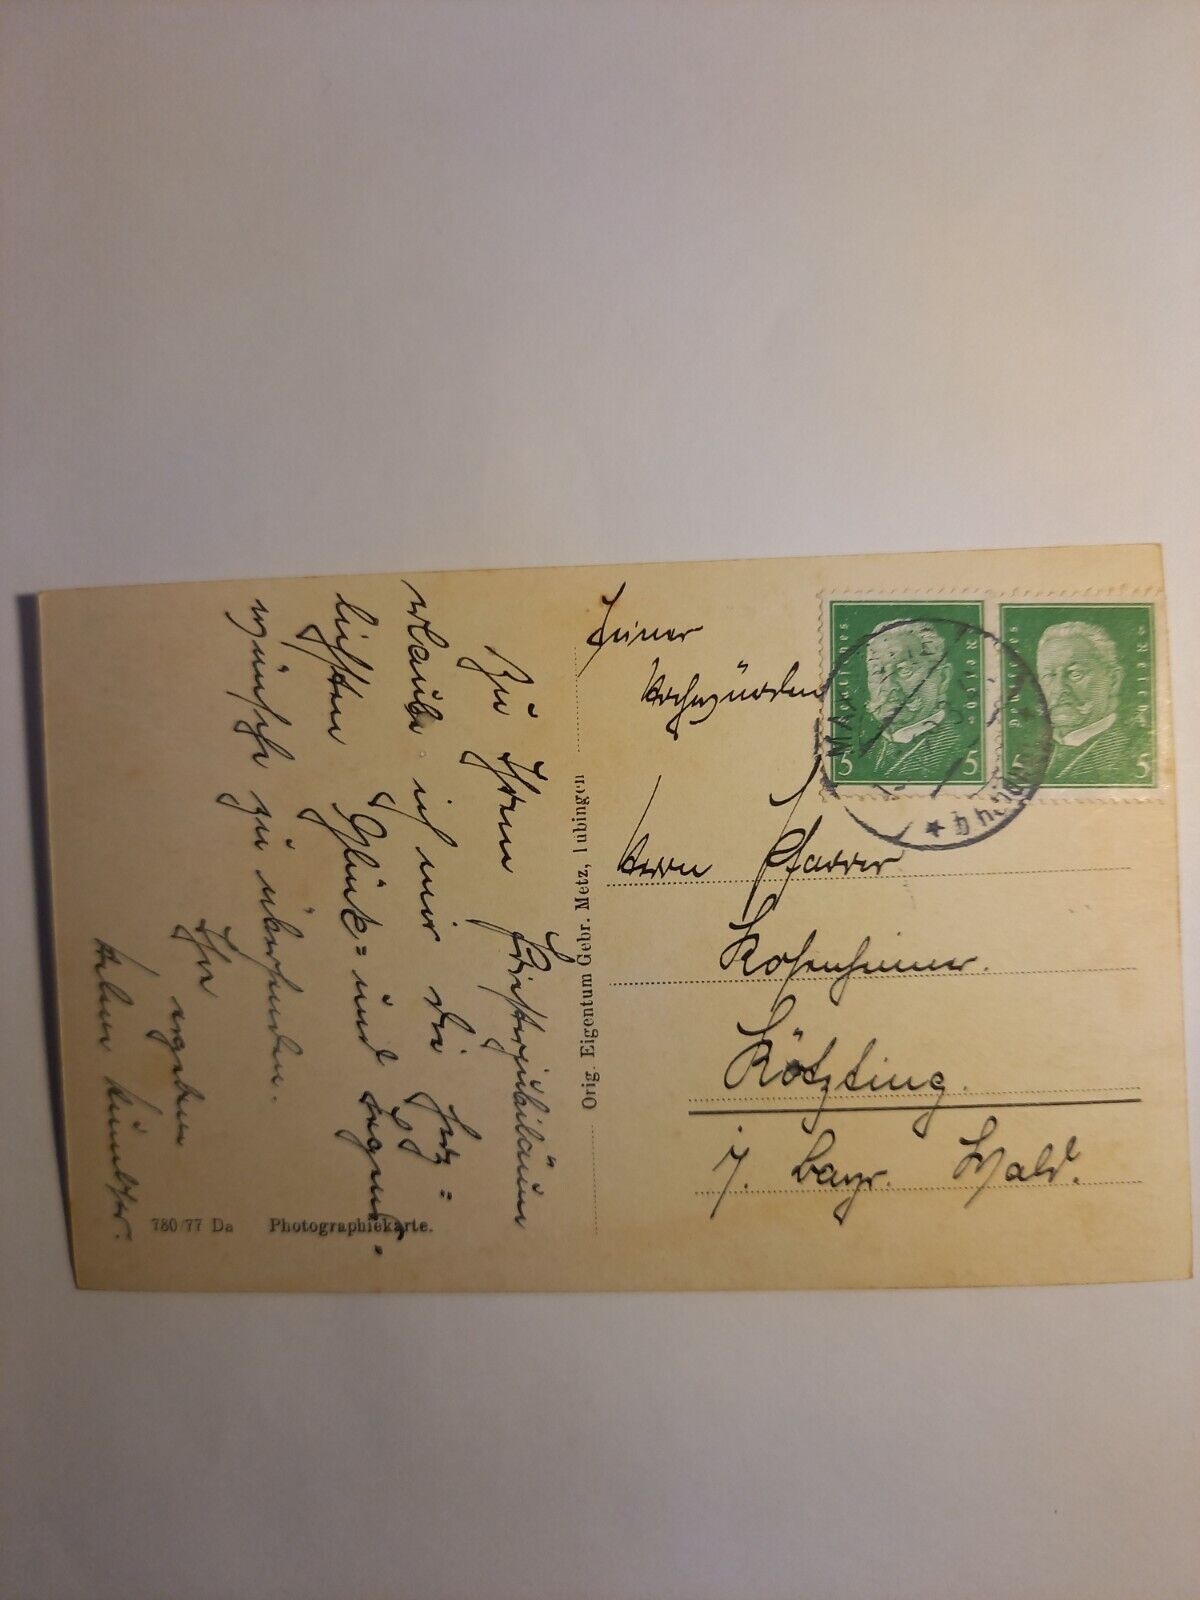 Zu Ihrem Priesterjubiläum
erlaube ich mir die herz=
lichsten Glück= und Segens=
wünsche zu übersenden.
Ihr
ergebener
780/77 Da Photographiekarte.
Orig. Eigentum Gebr. Metz, Tübingen
Deutsches Reich
5 5
Deutsches Reich
5 5
Seiner
Hochwürden
Herrn Pfarrer
Rosenheimer.
Kötzting.
i. bayr. Wald.